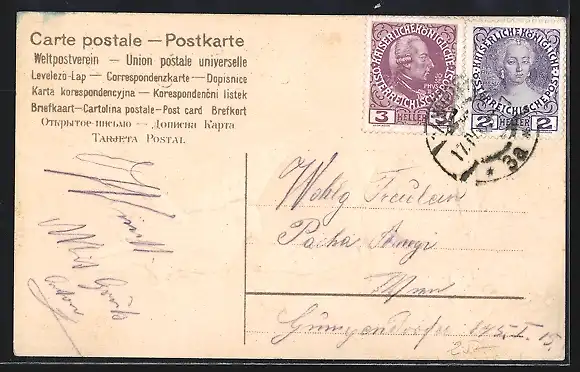 Carte postale — Postkarte
Weltpostverein — Union postale universelle
Levelező-Lap — Correspondenzkarte — Dopisnice
Karta korespondencyjna — Korespondenční listek
Briefkaart — Cartolina postale — Post card Brefkort
Открытое письмо — Дописна Карта
Tarjeta Postal
KAISERLICHE KÖNIGLICHE
ÖSTERREICHISCHE POST
3 HELLER 3
KAISERLICHE KÖNIGLICHE
ÖSTERREICHISCHE POST
2 HELLER 2
17.
* 3a *
Wohlg Fräulein
Wien
Gumpendorfer
I. 15.
Mit Gruß